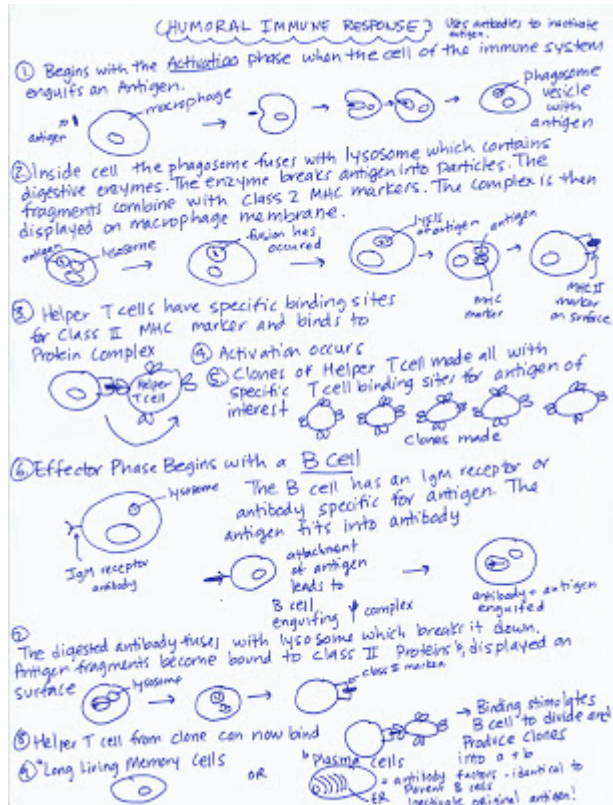 HUMORAL IMMUNE RESPONSE
Uses antibodies to inactivate antigen.
① Begins with the Activation phase when the cell of the immune system
engulfs an Antigen.
antigen
macrophage
phagosome
vesicle
with
antigen
② Inside cell the phagosome fuses with lysosome which contains
digestive enzymes. The enzyme breaks antigen into Particles. The
fragments combine with Class 2 MHC markers. The complex is then
displayed on macrophage membrane.
antigen
lysosome
fusion has
occured
lysis
of antigen
antigen
MHC
marker
MHC II
marker
on surface
③ Helper T cells have specific binding sites
for Class II MHC marker and binds to
Protein complex
Helper
T cell
④ Activation occurs
⑤ Clones of Helper T cell made all with
specific T cell binding sites for antigen of
interest
Clones made
⑥ Effector Phase Begins with a B Cell
lysosome
IgM receptor
antibody
The B cell has an IgM receptor or
antibody specific for antigen. The
antigen fits into antibody
attachment
of antigen
leads to
B cell
engulfing complex
antibody + antigen
engulfed
⑦
The digested antibody fuses with lysosome which breaks it down.
Antigen fragments become bound to Class II Proteins, displayed on
surface
lysosome
class II marker
⑧ Helper T cell from clone can now bind
→ Binding stimulates
B cell to divide and
Produce clones
into a + b
⑨ a Long Living Memory Cells
OR
b Plasma Cells
ER
= antibody factors - identical to
parent B cells
inactivate original antigen!